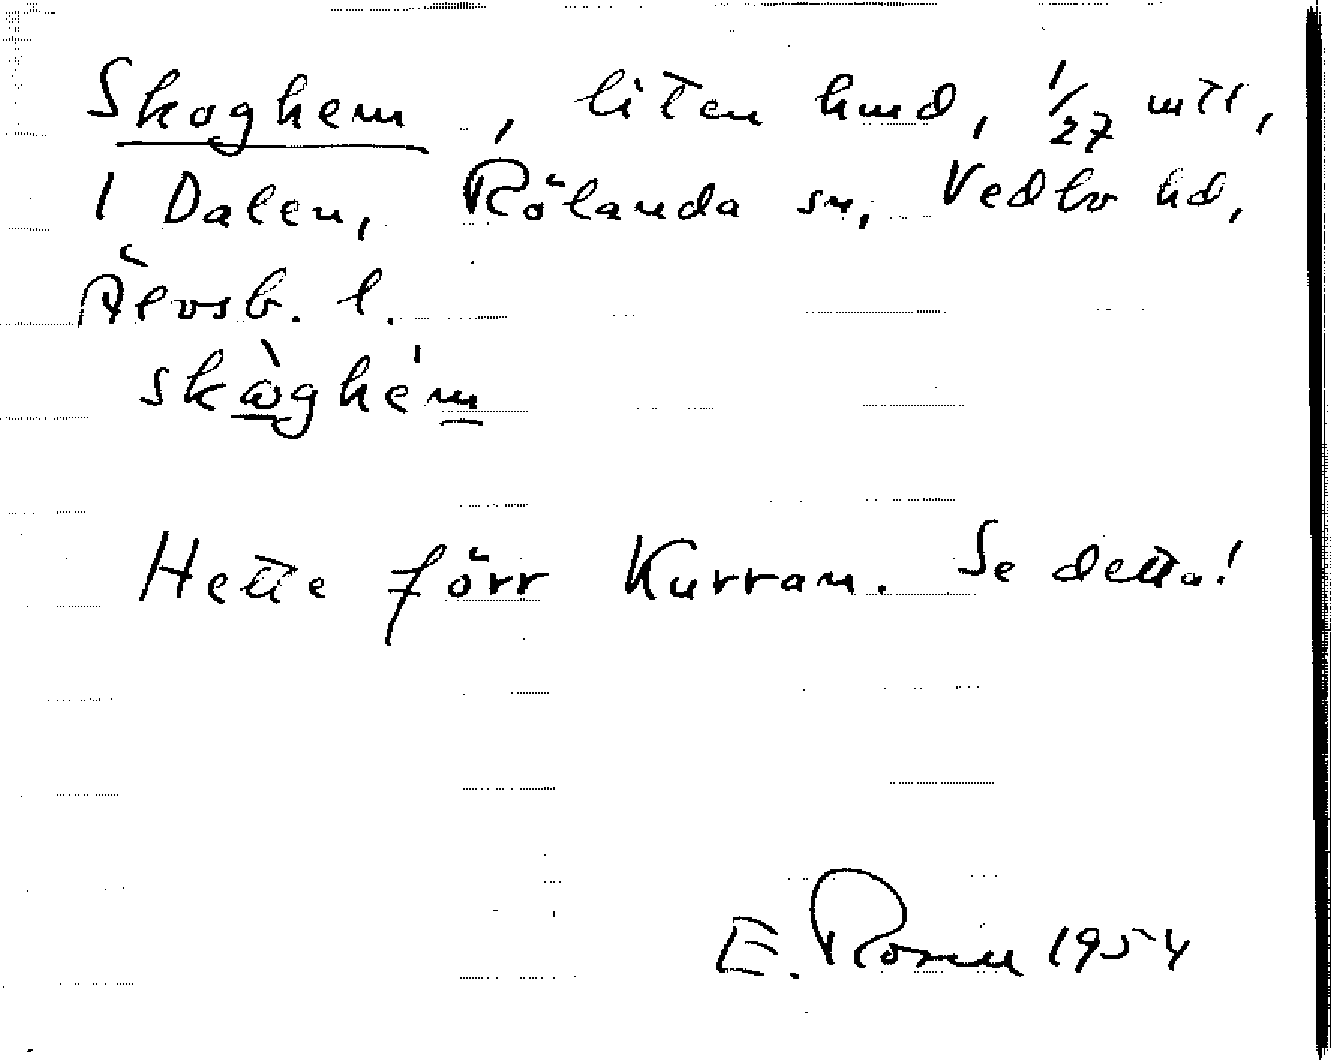 Skoghem, liten hmd, 1/27 mtl,
1 Dalen, Rölanda sn, Vedbo hd,
Älvsb. l.
skòghém
Hette förr Kurran. Se detta!
E. Rosén 1954